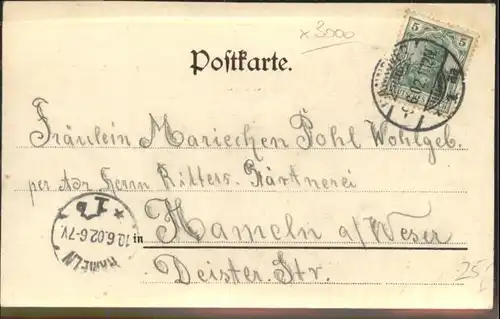 x3000
5 5
Postkarte.
Fräulein Mariechen Pohl Wohlgeb.
per Adr Herrn Ritters. Gärtnerei
in Hameln a/Weser
Deister. Str.
HAMELN
10.6.02.6-7V
* I b *
25